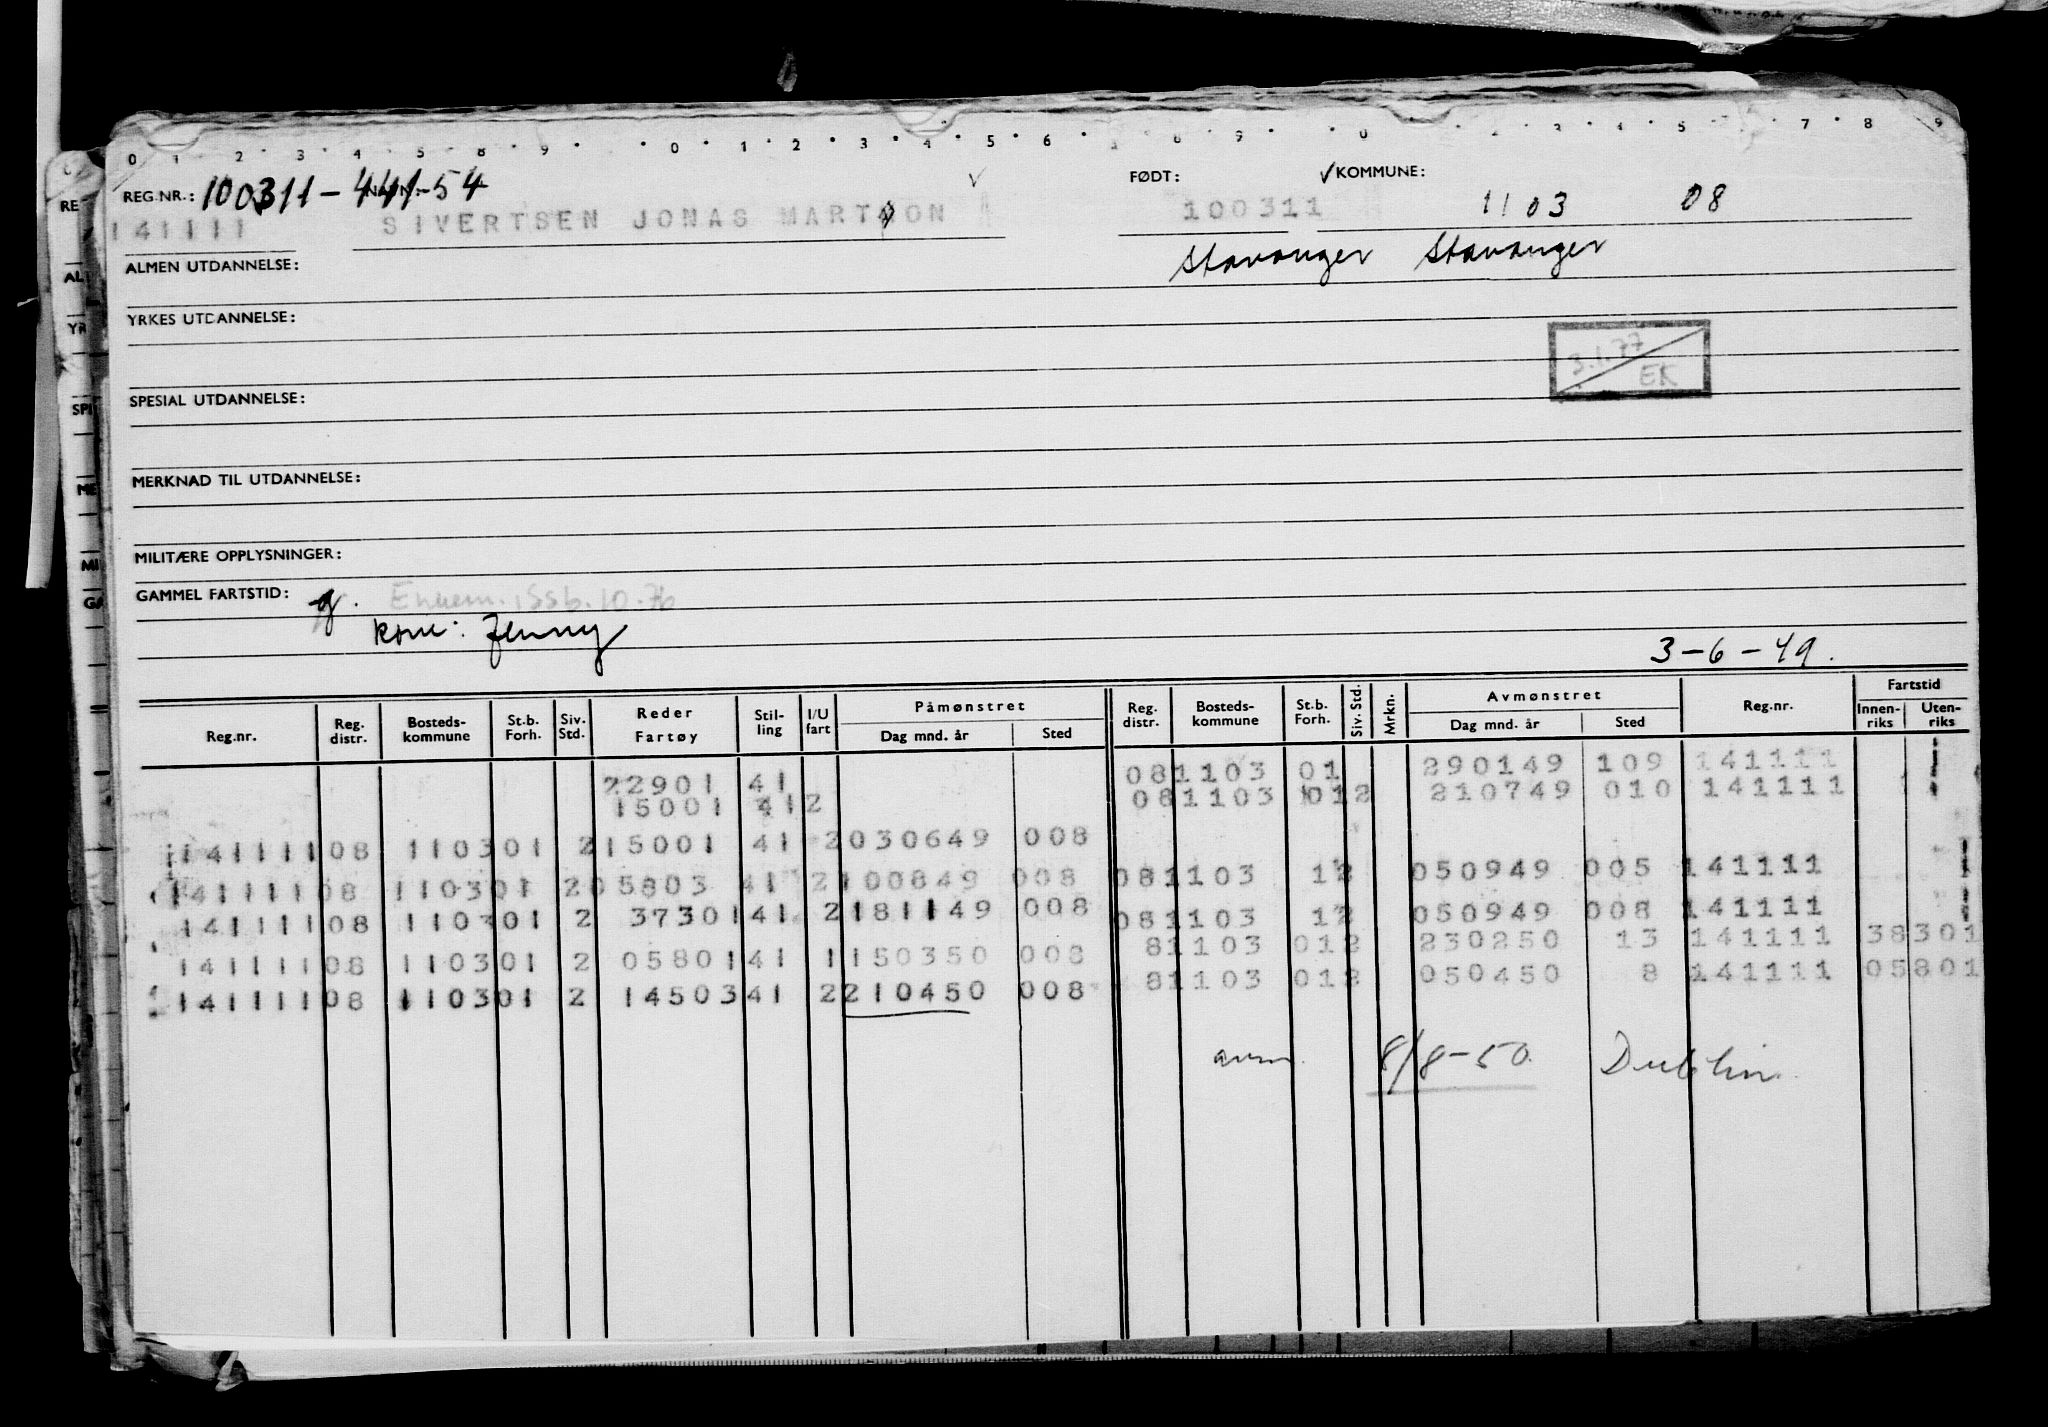 0 1 2 3 4 5 8 9 0 1 2 3 4 5 6 8 9 0 2 3 4 5 7 8 9
REG.NR.: 100311-441-54 FØDT: ✓KOMMUNE:
141111 SIVERTSEN JONAS MARTON 100311 1103 08
Stavanger Stavanger
ALMEN UTDANNELSE:
YRKES UTDANNELSE:
3.1.77
EK
SPESIAL UTDANNELSE:
MERKNAD TIL UTDANNELSE:
MILITÆRE OPPLYSNINGER:
GAMMEL FARTSTID: g.
kone: Jenny
3-6-49.
Reg.nr. Reg. distr. Bosteds-kommune St.b. Forh. Siv. Std. Reder Fartøy Stil-ling I/U fart Påmønstret Dag mnd. år Sted Reg. distr. Bosteds-kommune St.b. Forh. Siv. Std. Mrkn. Avmønstret Dag mnd. år Sted Reg.nr. Fartstid Innen-riks Uten-riks
22901 41 081103 01 290149 109 141111
15001 412 081103 012 210749 010 141111
141111 08 1103 01 2 15001 41 2 030649 008
141111 08 1103 01 2 05803 41 2 100849 008 081103 12 050949 005 141111
141111 08 1103 01 2 37301 41 2 181149 008 081103 12 050949 008 141111
81103 012 230250 13 141111 38301
141111 08 1103 01 2 05801 41 1 150350 008
81103 012 050450 8 141111 05801
141111 08 1103 01 2 14503 41 2 210450 008
avm. 8/8-50. Dublin.